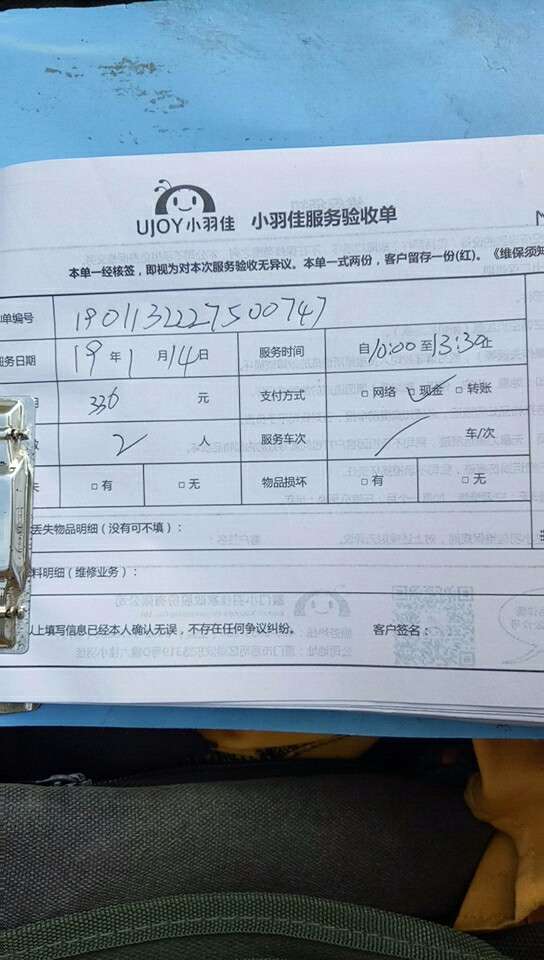 UJOY小羽佳 小羽佳服务验收单
本单一经核签，即视为对本次服务验收无异议。本单一式两份，客户留存一份(红)。《维保须知
单编号 1901132227500747
服务日期 19年1月14日 服务时间 自10:00至13:30止
336 元 支付方式 □网络 □现金 □转账
2 人 服务车次 车/次
□有 □无 物品损坏 □有 □无
丢失物品明细（没有可不填）：
料明细（维修业务）：
以上填写信息已经本人确认无误，不存在任何争议纠纷。 客户签名：